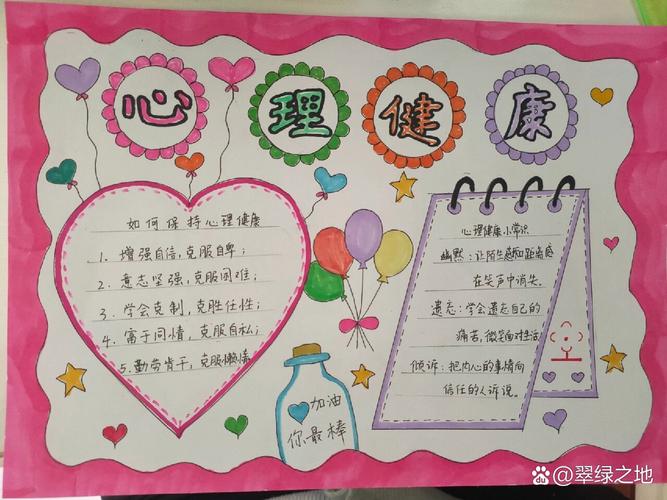 心理健康
如何保持心理健康
1. 增强自信,克服自卑;
2. 意志坚强,克服困难;
3. 学会克制,克胜任性;
4. 富于同情,克服自私;
5. 勤劳肯干,克服懒惰
心理健康小常识
幽默:让陌生感和距离感
在笑声中消失。
遗忘:学会遗忘自己的
痛苦,微笑面对生活
倾诉:把内心的事情向
信任的人诉说。
加油
你最棒
Bai du @翠绿之地